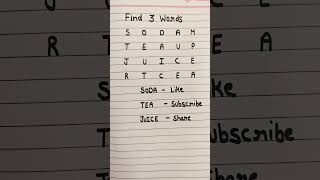 Find 3 Words
S O D A M
T E A U P
J U I C E
R T C E A
SODA - Like
TEA - Subscribe
JUICE - Share